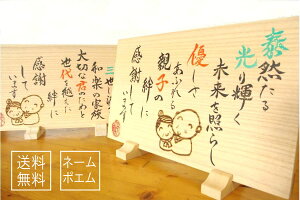 泰然たる
光り輝く
未来を照らし
優しさ
あふれる
親子の
絆に
感謝して
います
和楽の家族
大切な君のためと
世代を越えた
絆に
感謝して
います
送料
無料
ネーム
ポエム